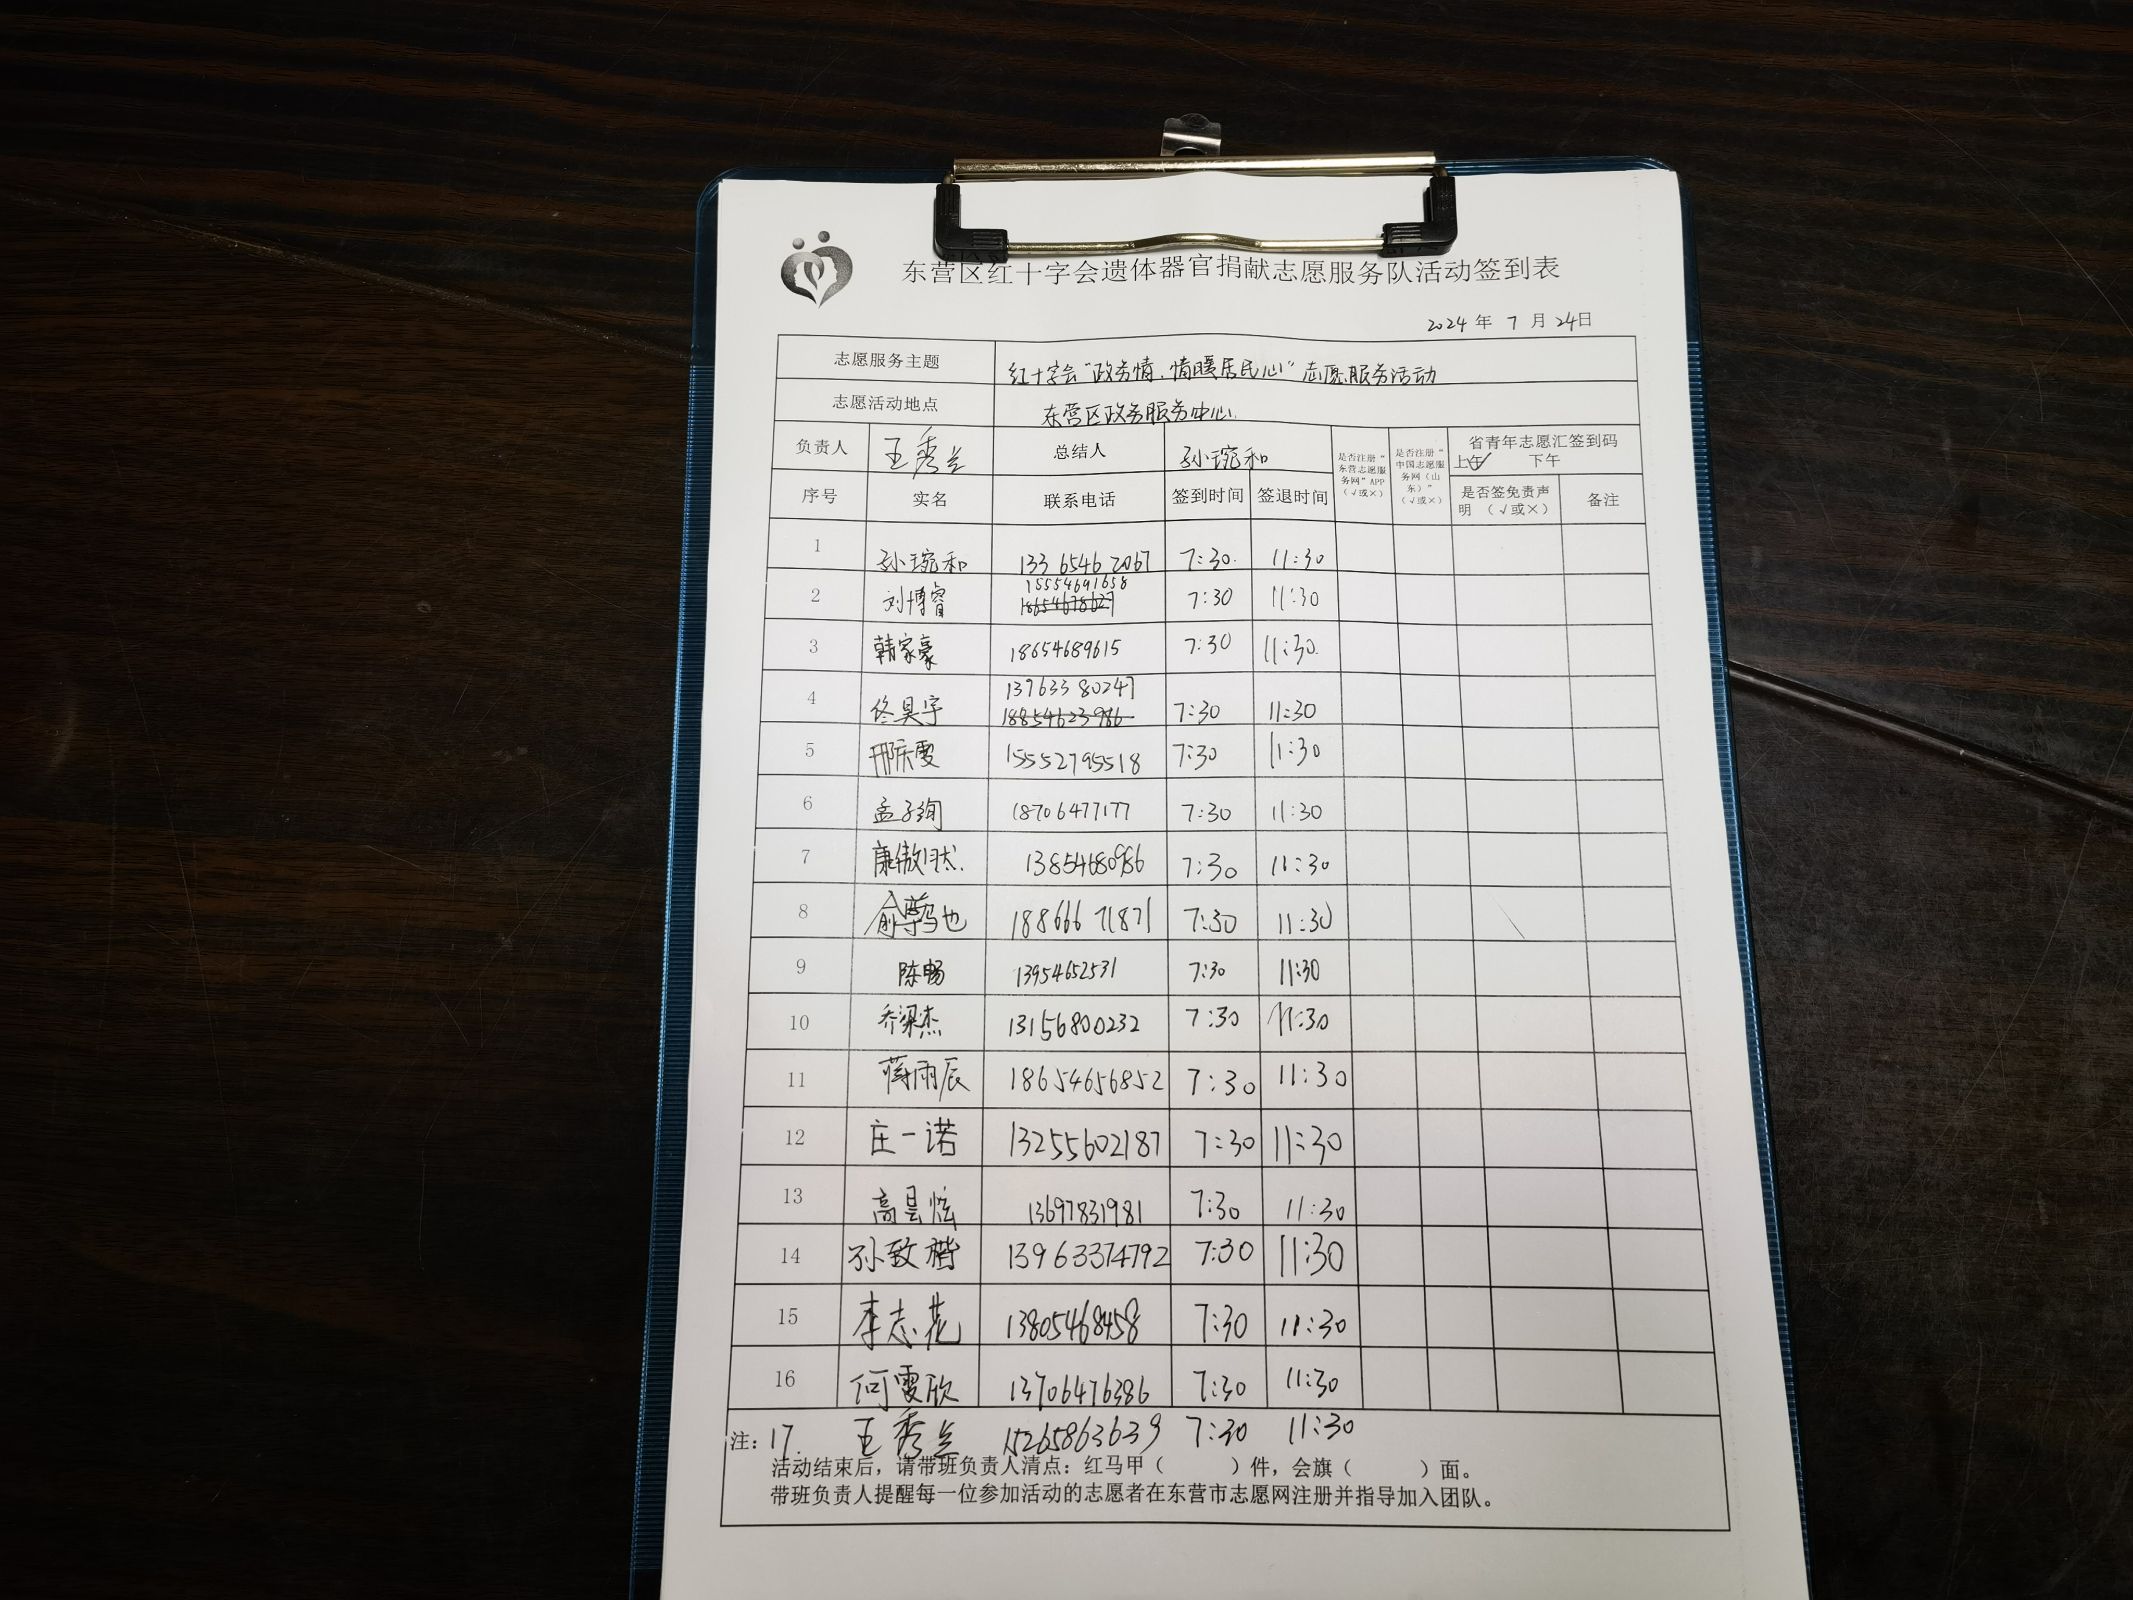 东营区红十字会遗体器官捐献志愿服务队活动签到表
2024 年 7 月 24日
志愿服务主题 红十字会"政务情，情暖居民心"志愿服务活动
志愿活动地点 东营区政务服务中心
负责人 王秀兰 总结人 孙琬和 是否注册"东营志愿服务网"APP（√或×） 是否注册"中国志愿服务网（山东）"（√或×） 省青年志愿汇签到码
上午✓ 下午
序号 实名 联系电话 签到时间 签退时间 是否签免责声明 （√或×） 备注
1 孙琬和 13365462067 7:30 11:30
2 刘博睿 15554691658 7:30 11:30
18654678627
3 韩家豪 18654689615 7:30 11:30
4 佟昊宇 13963380247 7:30 11:30
18854623986
5 邢庆雯 15552795518 7:30 11:30
6 孟子绚 18706477177 7:30 11:30
7 康傲 13854680986 7:30 11:30
8 俞 也 18866671871 7:30 11:30
9 陈畅 13954652531 7:30 11:30
10 乔梁杰 13156800232 7:30 11:30
11 蒋雨辰 18654656852 7:30 11:30
12 庄一诺 13255602187 7:30 11:30
13 高昙炫 13697831981 7:30 11:30
14 孙致楷 13963374792 7:30 11:30
15 李志花 13805468458 7:30 11:30
16 何雯欣 13706476386 7:30 11:30
注：17. 王秀兰 15265863639 7:30 11:30
活动结束后，请带班负责人清点：红马甲（ ）件，会旗（ ）面。
带班负责人提醒每一位参加活动的志愿者在东营市志愿网注册并指导加入团队。